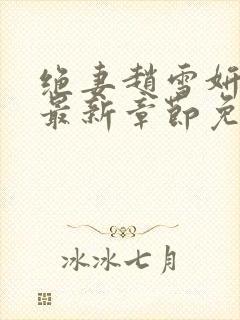 绝妻趙雪妍
最新章節免
冰冰七月